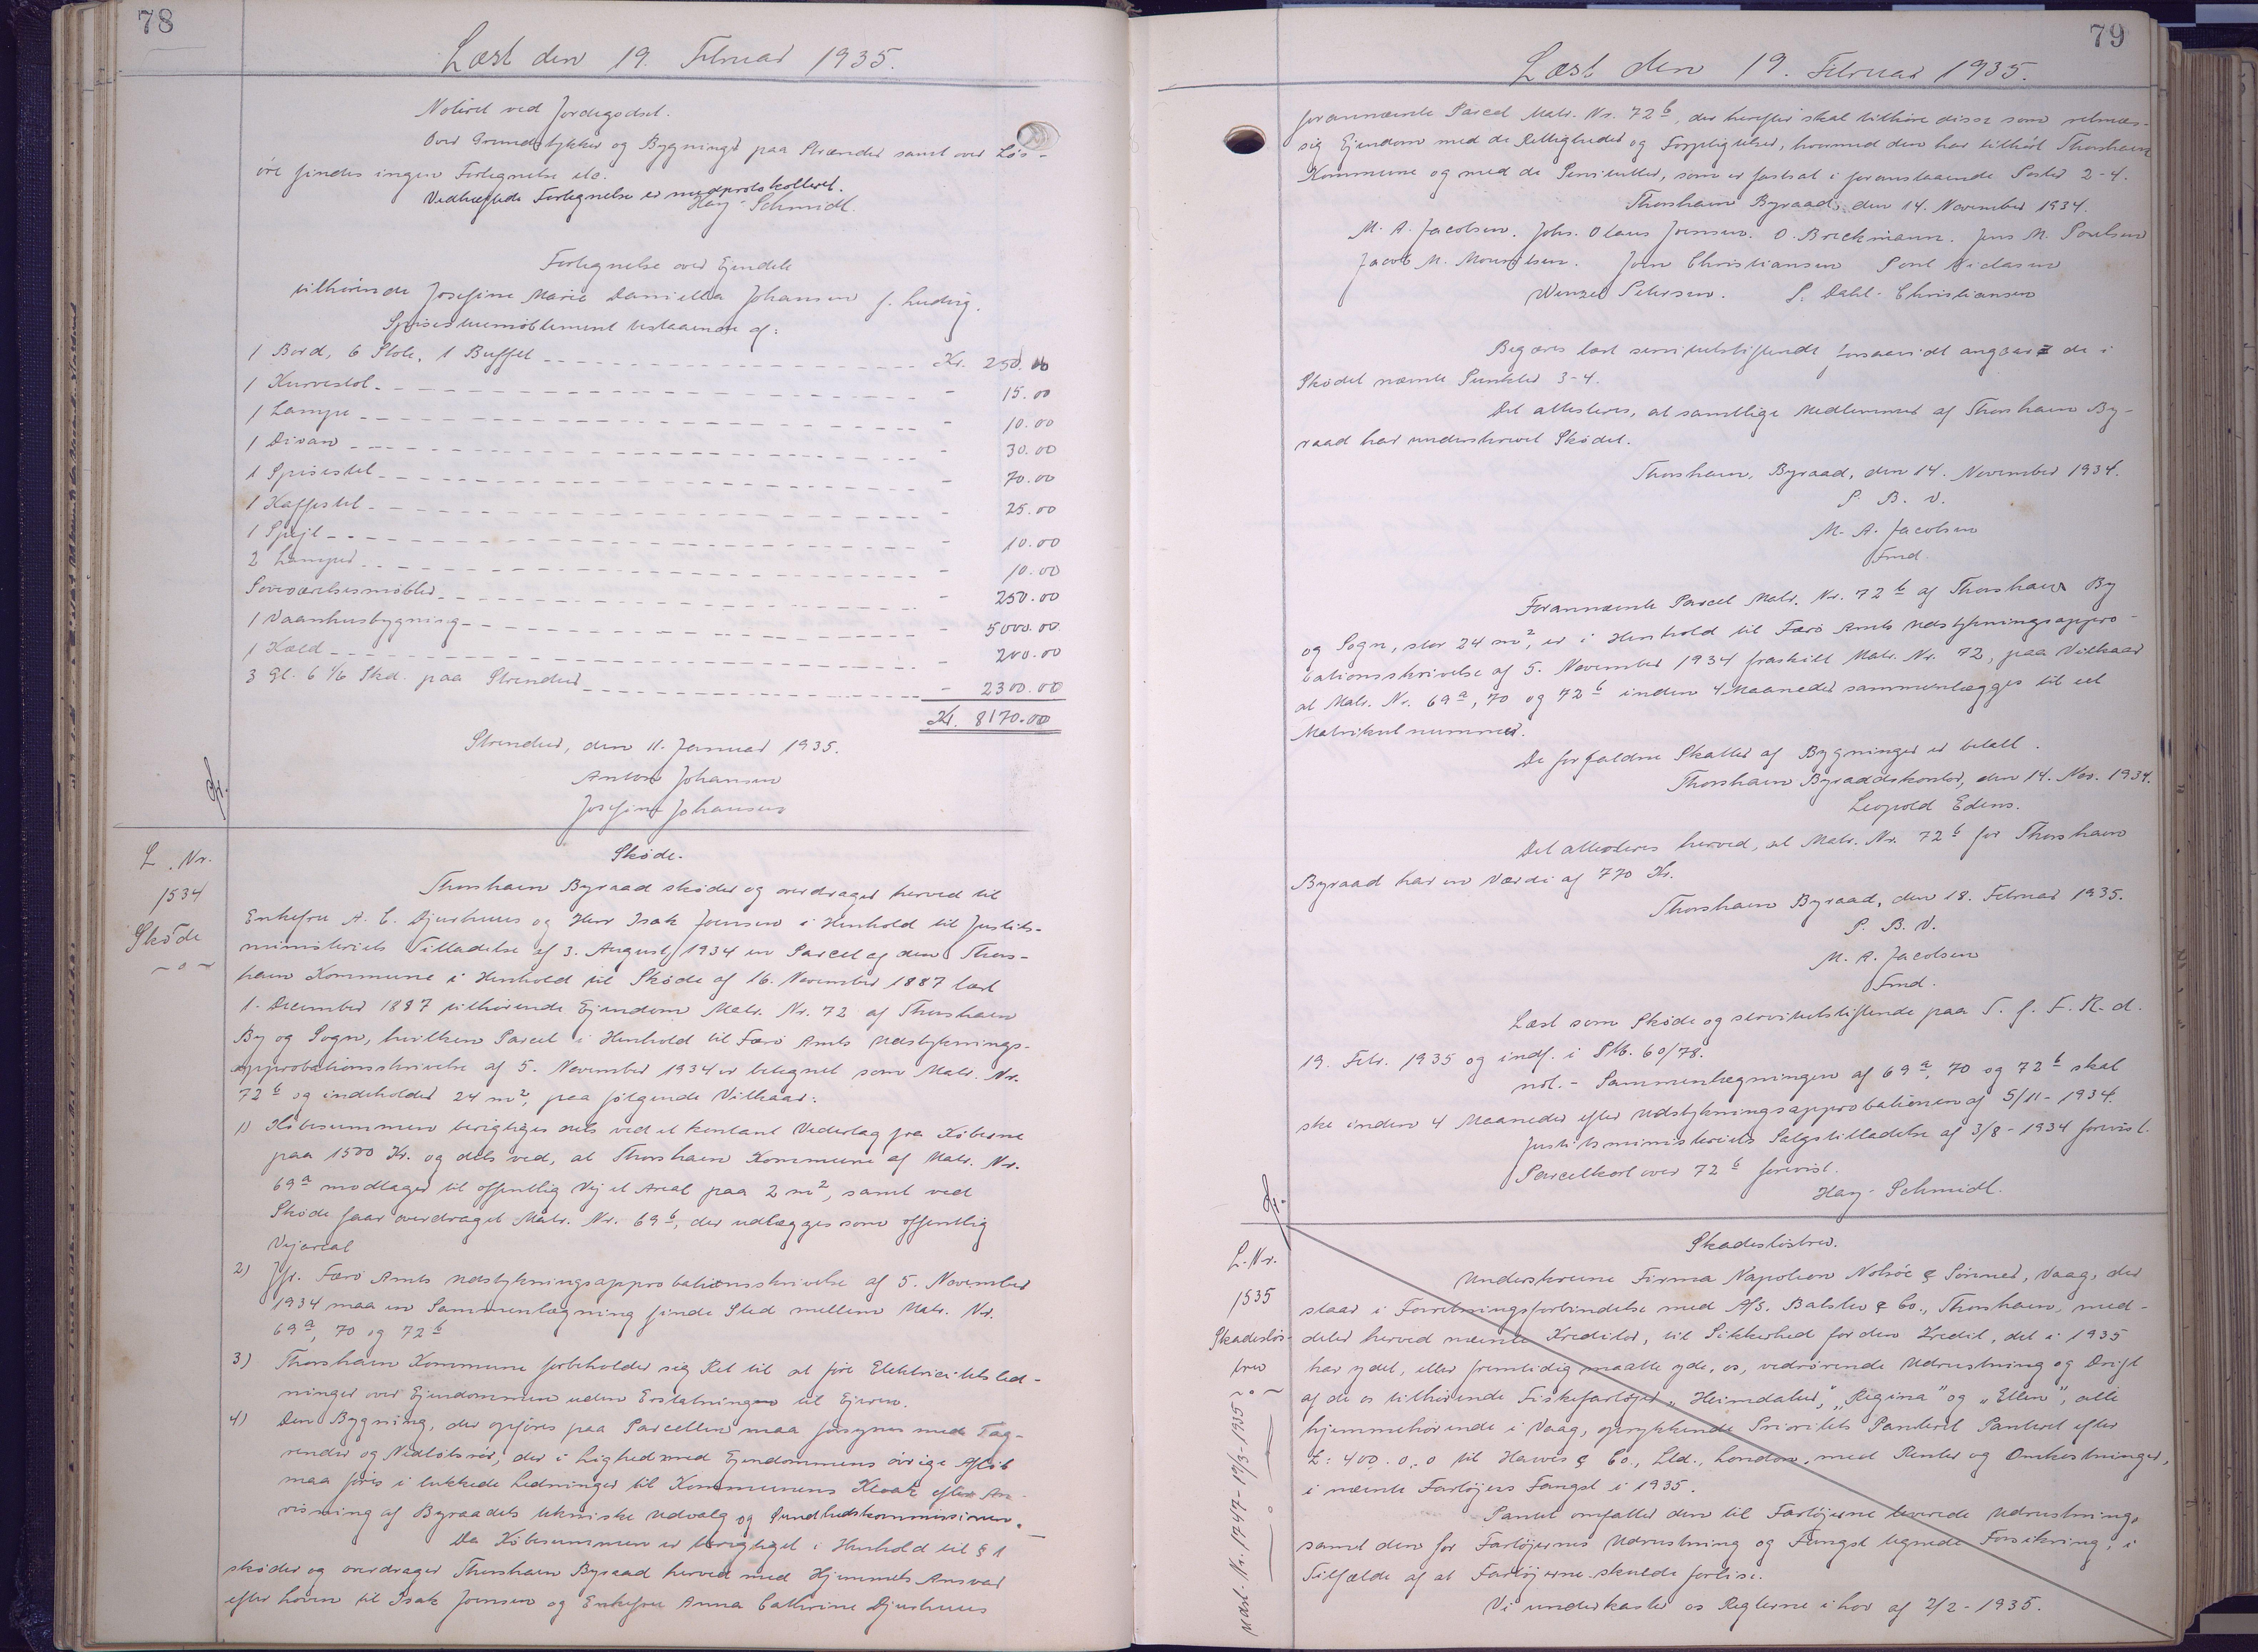 78
Læst den 19. Februar 1935.
Noteret ved Jordegodset.
Over Grundstykker og Bygninger paa Strænder samt over Løs-
øre findes ingen Fortegnelse etc.
Vedhæftede Fortegnelse er medprotokolleret.
Hay-Schmidt.
Fortegnelse over Ejendele
tilhørende Josefine Marie Daniella Johansen f. Ludvig.
Spisestuemøblement bestaaende af:
1 Bord, 6 Stole, 1 Buffet - Kr. 250.00
1 Kurvestol - - 15.00
1 Lampe - - 10.00
1 Divan - - 30.00
1 Spisestel - - 70.00
1 Kaffestel - - 25.00
1 Spejl - - 10.00
2 Lamper - - 10.00
Soveværelsesmøbler - - 250.00
1 Vaanhusbygning - - 5000.00
1 Kæld - - 200.00
3 Gl. 6 1/6 Skd. paa Strender - - 2300.00
Kr. 8170.00
Strender, den 11. Januar 1935.
Anton Johansen
Josefine Johansen
L. Nr.
1534
Skøde
Skøde.
Thorshavn Byraad skøder og overdrager herved til
Enkefru A. C. Djurhuus og Herr Isak Joensen i Henhold til Justits-
ministeriets Tilladelse af 3. August 1934 en Parcel af den Thors-
havn Kommune i Henhold til Skøde af 16. November 1887 læst
1. December 1887 tilhørende Ejendom Matr. Nr. 72 af Thorshavn
By og Sogn, hvilken Parcel i Henhold til Færø Amts Udstyknings-
approbationsskrivelse af 5. November 1934 er betegnet som Matr. Nr.
72 b og indeholder 24 m², paa følgende Vilkaar:
1) Købesummen berigtiges dels ved et kontant Vederlag fra Køberne
paa 1500 Kr. og dels ved, at Thorshavn Kommune af Matr. Nr.
69 a modtager til offentlig Vej et Areal paa 2 m², samt ved
Skøde faar overdraget Matr. Nr. 69 b, der udlægges som offentlig
Vejareal
2) Jfr. Færø Amts Udstykningsapprobationsskrivelse af 5. November
1934 maa en Sammenlægning finde Sted mellem Matr. Nr.
69 a, 70 og 72 b
3) Thorshavn Kommune forbeholder sig Ret til at føre Elektricitetsled-
ninger over Ejendommen uden Erstatningen til Ejeren.
4) Den Bygning, der opføres paa Parcellen maa forsynes med Tag-
render og Nedløbsrør, der i Lighed med Ejendommens øvrige Afløb
maa føres i lukkede Ledninger til Kommunens Kloak efter An-
visning af Byraadets tekniske Udvalg og Sundhedskommissionen.
Da Købesummen er berigtiget i Henhold til § 1
skøder og overdrager Thorshavn Byraad herved med Hjemmels Ansvar
efter Loven til Isak Joensen og Enkefru Anna Cathrine Djurhuus
79
Læst den 19. Februar 1935.
forannævnte Parcel Matr. Nr. 72 b, der herefter skal tilhøre disse som retmæs-
sig Ejendom med de Rettigheder og Forpligtelser, hvormed den har tilhørt Thorshavn
Kommune og med de Servitutter, som er fastsat i foranstaaende Poster 2-4.
Thorshavn Byraad, den 14. November 1934.
M. A. Jacobsen. Johs. Olaus Joensen. O. Brekmann. Jens M. Poulsen
Jacob M. Mouritsen. Joen Christiansen Poul Niclasen
Wenzel Petersen. P. Dahl-Christiansen
Begæres læst servitutstiftende forsaavidt angaar de i
Skødet nævnte Punkter 3-4.
Det attesteres, at samtlige Medlemmer af Thorshavn By-
raad har underskrevet Skødet.
Thorshavn, Byraad, den 14. November 1934.
P. B. V.
M. A. Jacobsen
Fmd.
Forannævnte Parcel Matr. Nr. 72 b af Thorshavn By
og Sogn, stor 24 m², er i Henhold til Færø Amts Udstykningsappro-
bationsskrivelse af 5. November 1934 fraskilt Matr. Nr. 72, paa Vilkaar
at Matr. Nr. 69 a, 70 og 72 b inden 4 Maaneder sammenlægges til eet
Matrikulnummer.
De forfaldne Skatter af Bygninger er betalt.
Thorshavn Byraadskontor, den 14. Nov. 1934.
Leopold Edens.
Det attesteres herved, at Matr. Nr. 72 b for Thorshavn
Byraad har en Værdi af 770 Kr.
Thorshavn Byraad, den 18. Februar 1935.
P. B. V.
M. A. Jacobsen
Fmd.
Læst som Skøde og servitutstiftende paa T. f. F. R. d.
19. Febr. 1935 og indf. i Ptb. 60/78.
not. - Sammenlægningen af 69 a, 70 og 72 b skal
ske inden 4 Maaneder efter Udstykningsapprobationen af 5/11-1934.
Justitsministeriets Salgstilladelse af 3/8-1934 forevist.
Parcelkort over 72 b forevist.
Hay-Schmidt.
L. Nr.
1535
Skadesløs-
brev
Skadesløsbrev.
Underskrevne Firma Napoleon Nolsøe & Sønner, Vaag, der
staar i Forretningsforbindelse med A/S. Balslev & Co., Thorshavn, med-
deler herved nævnte Kreditor, til Sikkerhed for den Kredit, det i 1935
har ydet, eller fremtidig maatte yde, os, vedrørende Udrustning og Drift
af de os tilhørende Fiskefartøjer „Heimdalur", „Regina" og „Ellen", alle
hjemmehørende i Vaag, oprykkende Prioritets Panteret Panteret efter
£: 400.0.0 til Hawes & Co., Ltd., London, med Renter og Omkostninger,
i nævnte Fartøjers Fangst i 1935.
Pantet omfatter den til Fartøjerne leverede Udrustning,
samt den for Fartøjernes Udrustning og Fangst tegnede Forsikring, i
Tilfælde af at Fartøjerne skulde forlise.
Vi underkaster os Reglerne i Lov af 2/2-1935.